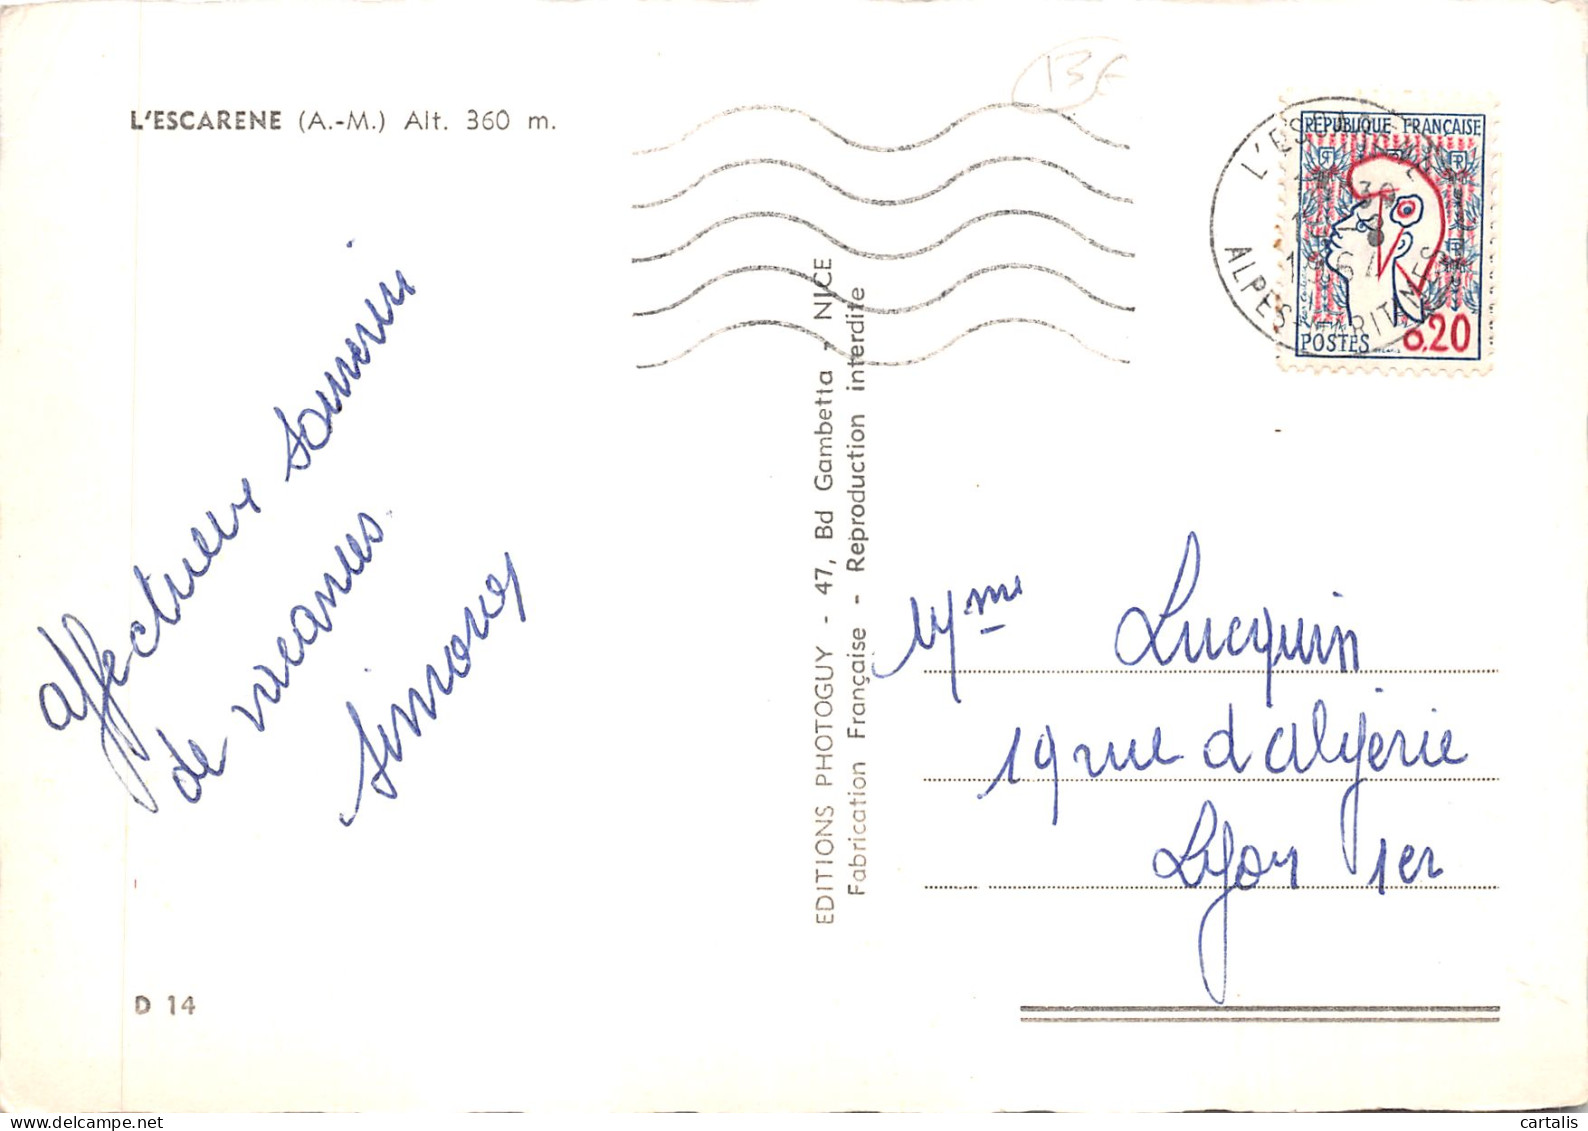 L'ESCARENE (A.-M.) Alt. 360 m.
affectueux souvenir
de vacances.
Simone
D 14
EDITIONS PHOTOGUY - 47, Bd Gambetta - NICE
Fabrication Française - Reproduction interdite
L'ESCARENE
ALPES-MARITIMES
REPUBLIQUE FRANÇAISE
POSTES 0.20
Mme Lucquin
19 rue d'algérie
Lyon 1er
cartalis